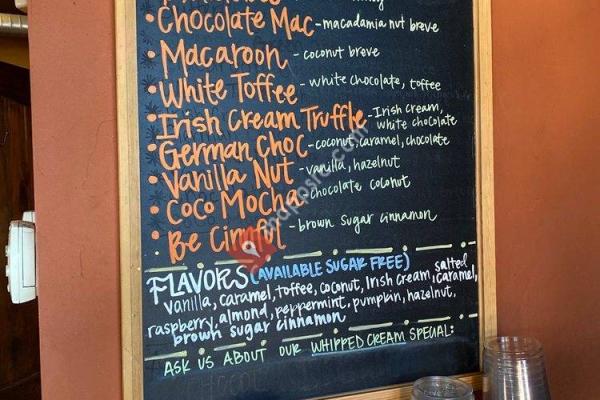 • Chocolate Mac - macadamia nut breve
• Macaroon - coconut breve
• White Toffee - white chocolate, toffee
• Irish Cream Truffle - Irish Cream, white chocolate
• German Choc - coconut, caramel, chocolate
• Vanilla Nut - vanilla, hazelnut
• Coco Mocha - chocolate coconut
• Be Cinful - brown sugar cinnamon
FLAVORS (AVAILABLE SUGAR FREE)
vanilla, caramel, toffee, coconut, Irish cream, salted caramel,
raspberry, almond, peppermint, pumpkin, hazelnut,
brown sugar cinnamon
ASK US ABOUT OUR WHIPPED CREAM SPECIAL: